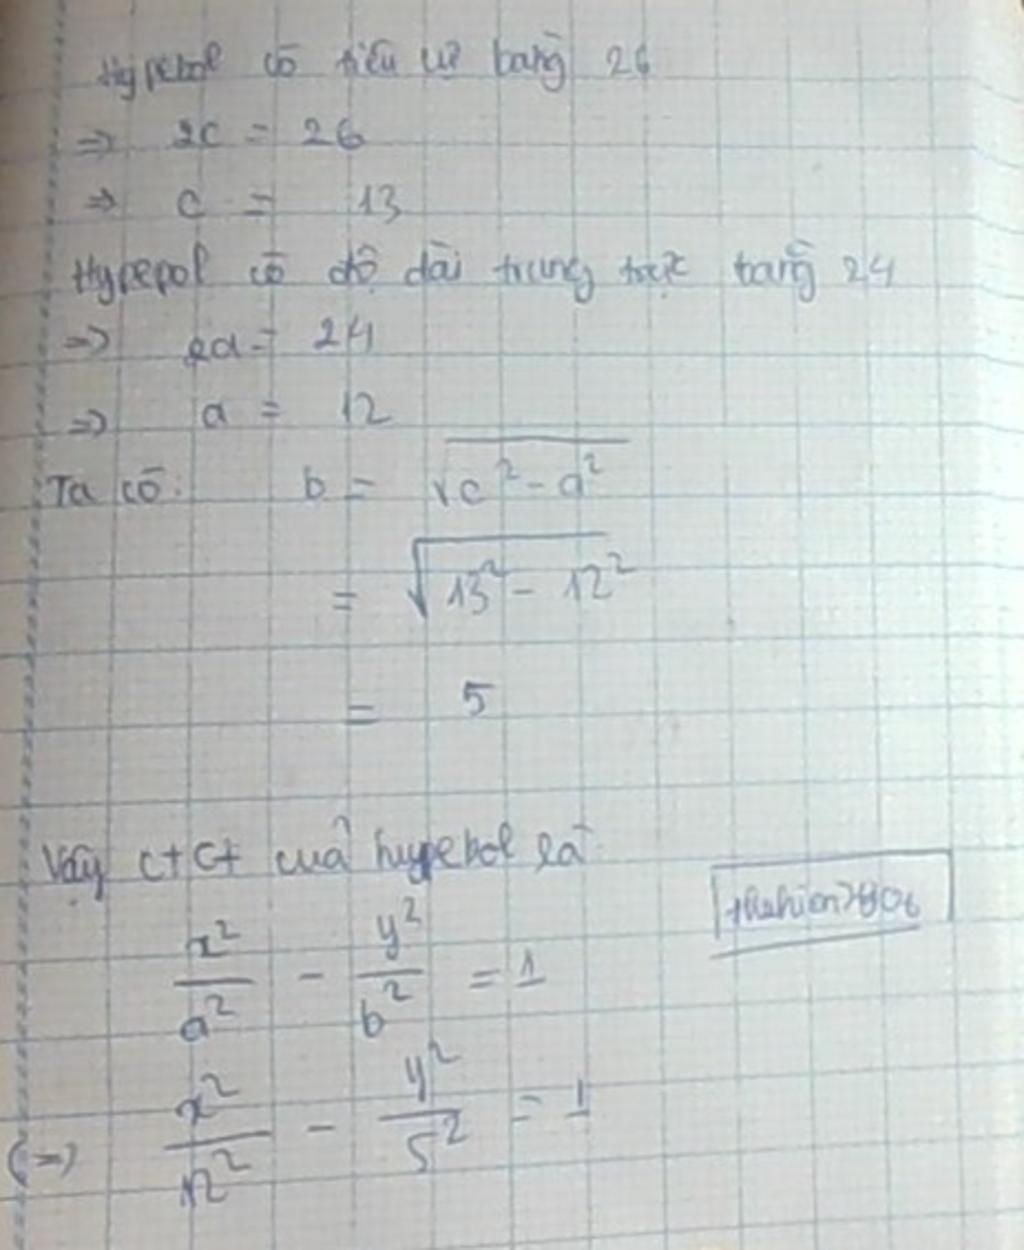 Hypebol có tiêu cự bằng 26
=> 2c = 26
=> c = 13
Hypepol có độ dài trung trực bằng 24
=> 2a = 24
=> a = 12
Ta có: b = √c² - a²
= √13² - 12²
= 5
Vậy ctct của hypebol là
x²/a² - y²/b² = 1
(=>) x²/12² - y²/5² = 1